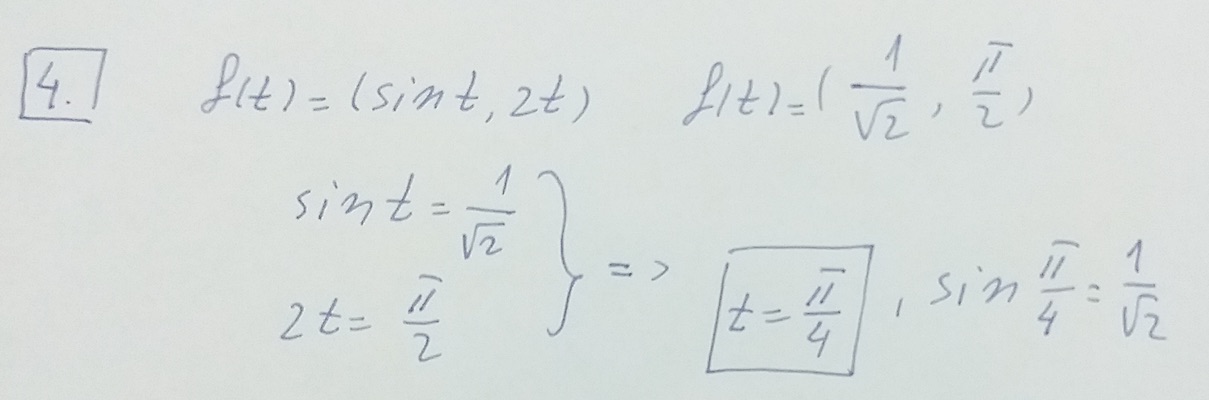 4. f(t) = (sin t, 2t) f(t) = ( 1/√2 , π/2 )
sin t = 1/√2
2t = π/2 } => t = π/4 , sin π/4 = 1/√2